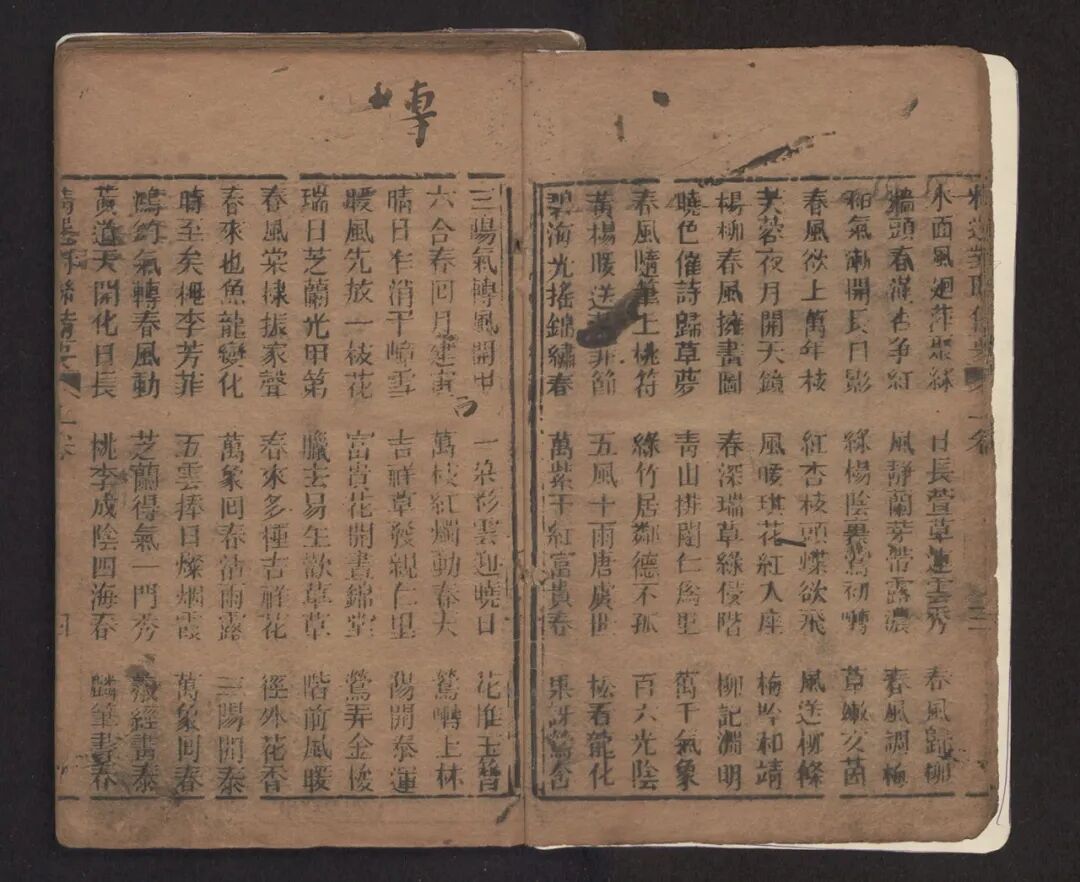 水面風廻萍聚綠　日長萱草連雲秀　春風歸柳
牆頭春濕杏爭紅　風靜蘭芽帶露濃　春風調梅
和氣漸開長日影　綠楊陰裏鶯初囀　草嫩文茵
春風欲上萬年枝　紅杏枝頭蝶欲飛　風送柳條
芙蓉夜月開天鏡　風暖琪花紅入座　梅吟和靖
楊柳春風擁畫圖　春深瑞草綠侵階　柳記淵明
曉色催詩歸草夢　青山排闥仁為里　萬千氣象
春風隨筆上桃符　綠竹居鄰德不孤　百六光陰
黃楊暖送節　五風十雨唐虞世　松看龍化
碧海光搖錦繡春　萬紫千紅富貴春　鶯
傳
三陽氣轉風開甲　一朵彩雲迎曉日　花惟玉
六合春回月建寅　萬枝紅燭動春天　鶯囀上林
晴日乍消千嶂雪　吉祥草發親仁里　陽開泰運
暖風先放一枝花　富貴花開晝錦堂　鶯弄金梭
瑞日芝蘭光甲第　臘去易生歡草草　階前風暖
春風棠棣振家聲　春來多種吉祥花　徑外花香
春來也魚龍變化　萬象回春沾雨露　三陽開泰
時至矣桃李芳菲　五雲捧日燦烟霞　萬象回春
鴻鈞氣轉春風動　芝蘭得氣一門秀　書泰
黃道天開化日長　桃李成陰四海春　麟筆書春
卷　四